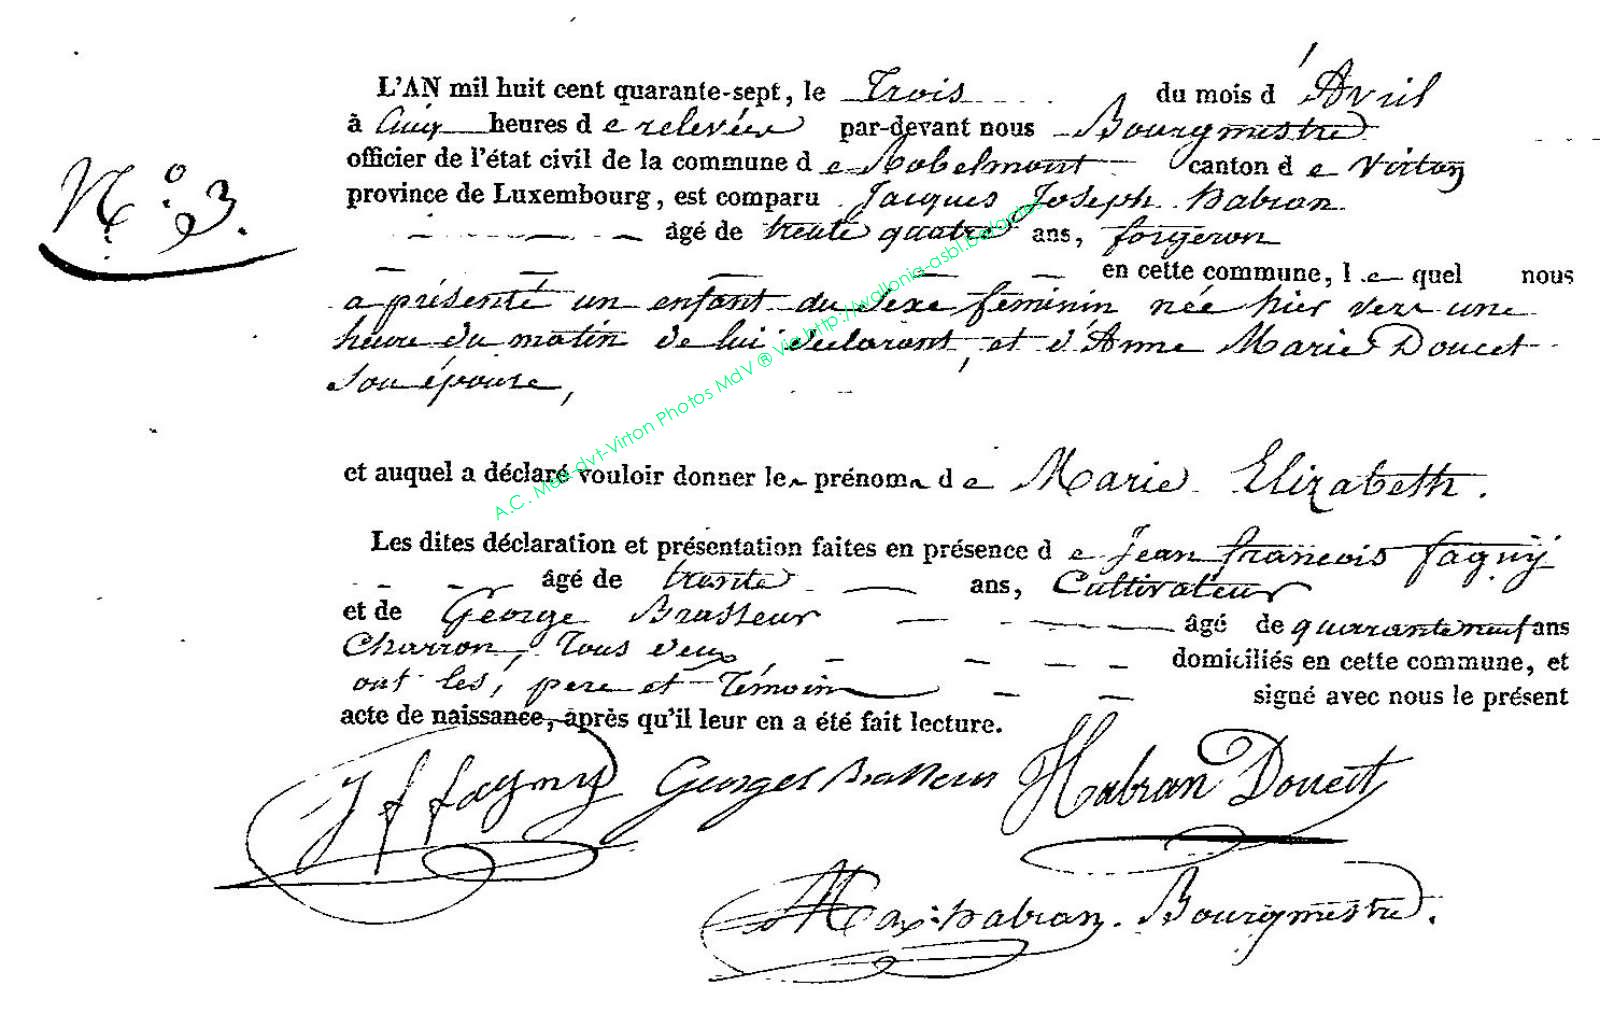 L'AN mil huit cent quarante-sept, le Trois du mois d'Avril
à Cinq heures de relevée par-devant nous Bourgmestre
officier de l'état civil de la commune de Robelmont canton de Virton
N.º 3.
province de Luxembourg, est comparu Jacques Joseph habran
âgé de trente quatre ans, forgeron
en cette commune, lequel nous
a présenté un enfant du sexe feminin née hier vers une
heure du matin de lui déclarant, et d'Anne Marie Doucet
son épouse,
et auquel a déclaré vouloir donner les prénoms de Marie Elizabeth.
Les dites déclaration et présentation faites en présence de Jean francois fagny
âgé de trente ans, Cultivateur
et de George Brasseur âgé de quaranteneuf ans
Charron, Tous deux domiciliés en cette commune, et
ont les, pere et Témoin signé avec nous le présent
acte de naissance, après qu'il leur en a été fait lecture.
J f fagny Georges Brasseur Habran Doucet
Max: habran. Bourgmestre.
A.C. Meix-dvt-Virton Photos MdV ® Via http://wallonia-asbl.be/actes